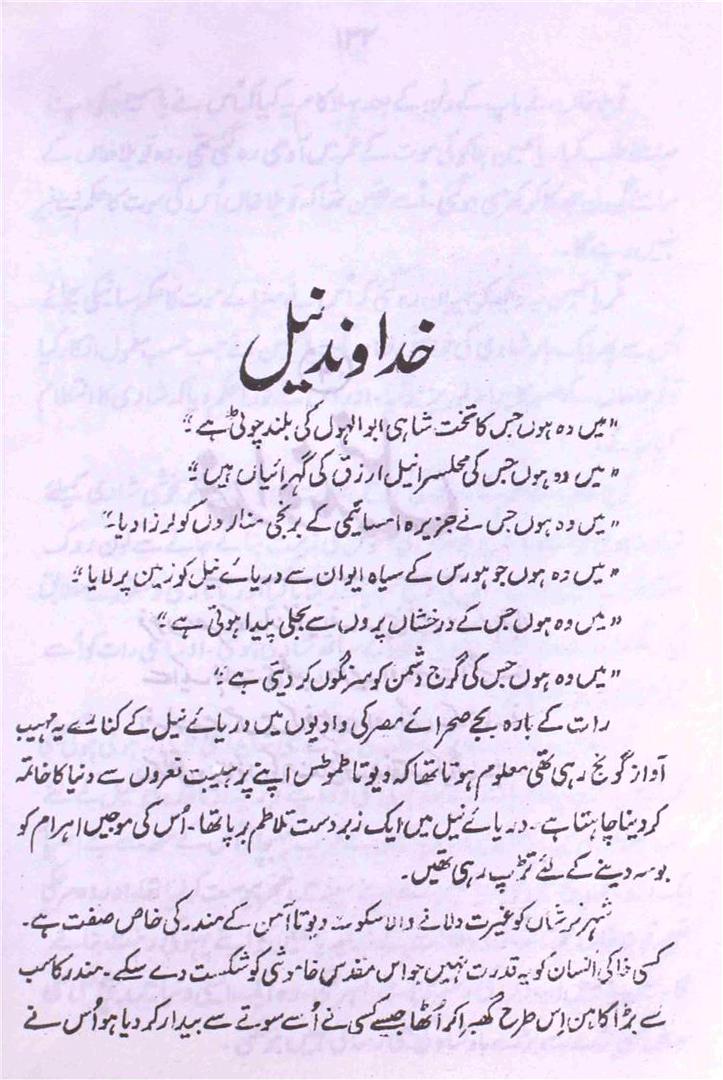 خداوندِ نیل
"میں وہ ہوں جس کا تخت شاہی ابوالہول کی بلند چوٹی ہے"۔
"میں وہ ہوں جس کی محلسرا نیل ارزق کی گہرائیاں ہیں"۔
"میں وہ ہوں جس نے جزیرہ کے برنجی مناروں کو لرزا دیا"۔
"میں وہ ہوں جو ہورس کے سیاہ ایوان سے دریائے نیل کو زمین پر لایا"۔
"میں وہ ہوں جس کے درخشاں پروں سے بجلی پیدا ہوتی ہے"۔
"میں وہ ہوں جس کی گرج دشمن کو سرنگوں کر دیتی ہے"۔
رات کے بارہ بجے صحرائے مصر کی وادیوں میں دریائے نیل کے کنارے یہ مہیب
آواز گونج رہی تھی معلوم ہوتا تھا کہ دیوتا طموطس اپنے پر ہیبت نعروں سے دنیا کا خاتمہ
کر دینا چاہتا ہے۔ دریائے نیل میں ایک زبردست تلاطم برپا تھا۔ اُس کی موجیں اہرام کو
بوسہ دینے کے لئے تڑپ رہی تھیں۔
شہر خموشاں کو غیرت دلانے والا سکوت دیوتا آمن کے مندر کی خاص صفت ہے۔
کسی خاکی انسان کو یہ قدرت نہیں جو اس مقدس خاموشی کو شکست دے سکے۔ مندر کا سب
سے بڑا کاہن اِس طرح گھبرا کر اُٹھا جیسے کسی نے اُسے سوتے سے بیدار کر دیا ہو اُس نے